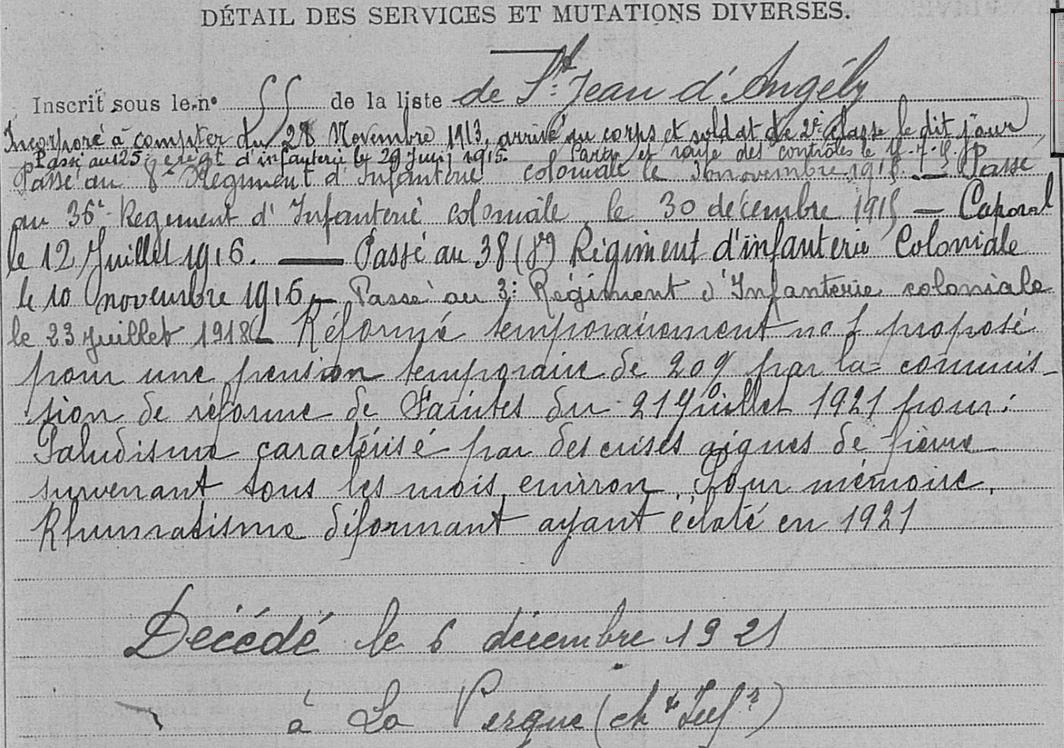 DÉTAIL DES SERVICES ET MUTATIONS DIVERSES.
Inscrit sous le n° 55 de la liste de St Jean d'Angély
Incorporé à compter du 28 Novembre 1913, arrivé au corps et soldat de 2e classe le dit jour
Passé au 25 d'infanterie le 29 juin 1915. et rayé des contrôles le
Passé au 8e Régiment d'Infanterie coloniale le novembre 1915. — Passé
au 36e Régiment d'Infanterie coloniale le 30 décembre 1915 — Caporal
le 12 Juillet 1916. — Passé au 38 Régiment d'infanterie Coloniale
le 10 novembre 1916 — Passé au 3e Régiment d'Infanterie coloniale
le 23 juillet 1918 — Réformé temporairement no 1 proposé
pour une pension temporaire de 20% par la commis-
sion de réforme de Saintes du 21 Juillet 1921 pour :
Paludisme caractérisé par des crises aigues de fièvre
survenant tous les mois environ. Pour mémoire,
Rhumatisme déformant ayant éclaté en 1921
Décédé le 6 décembre 1921
à La Vergne (Chte Infre)